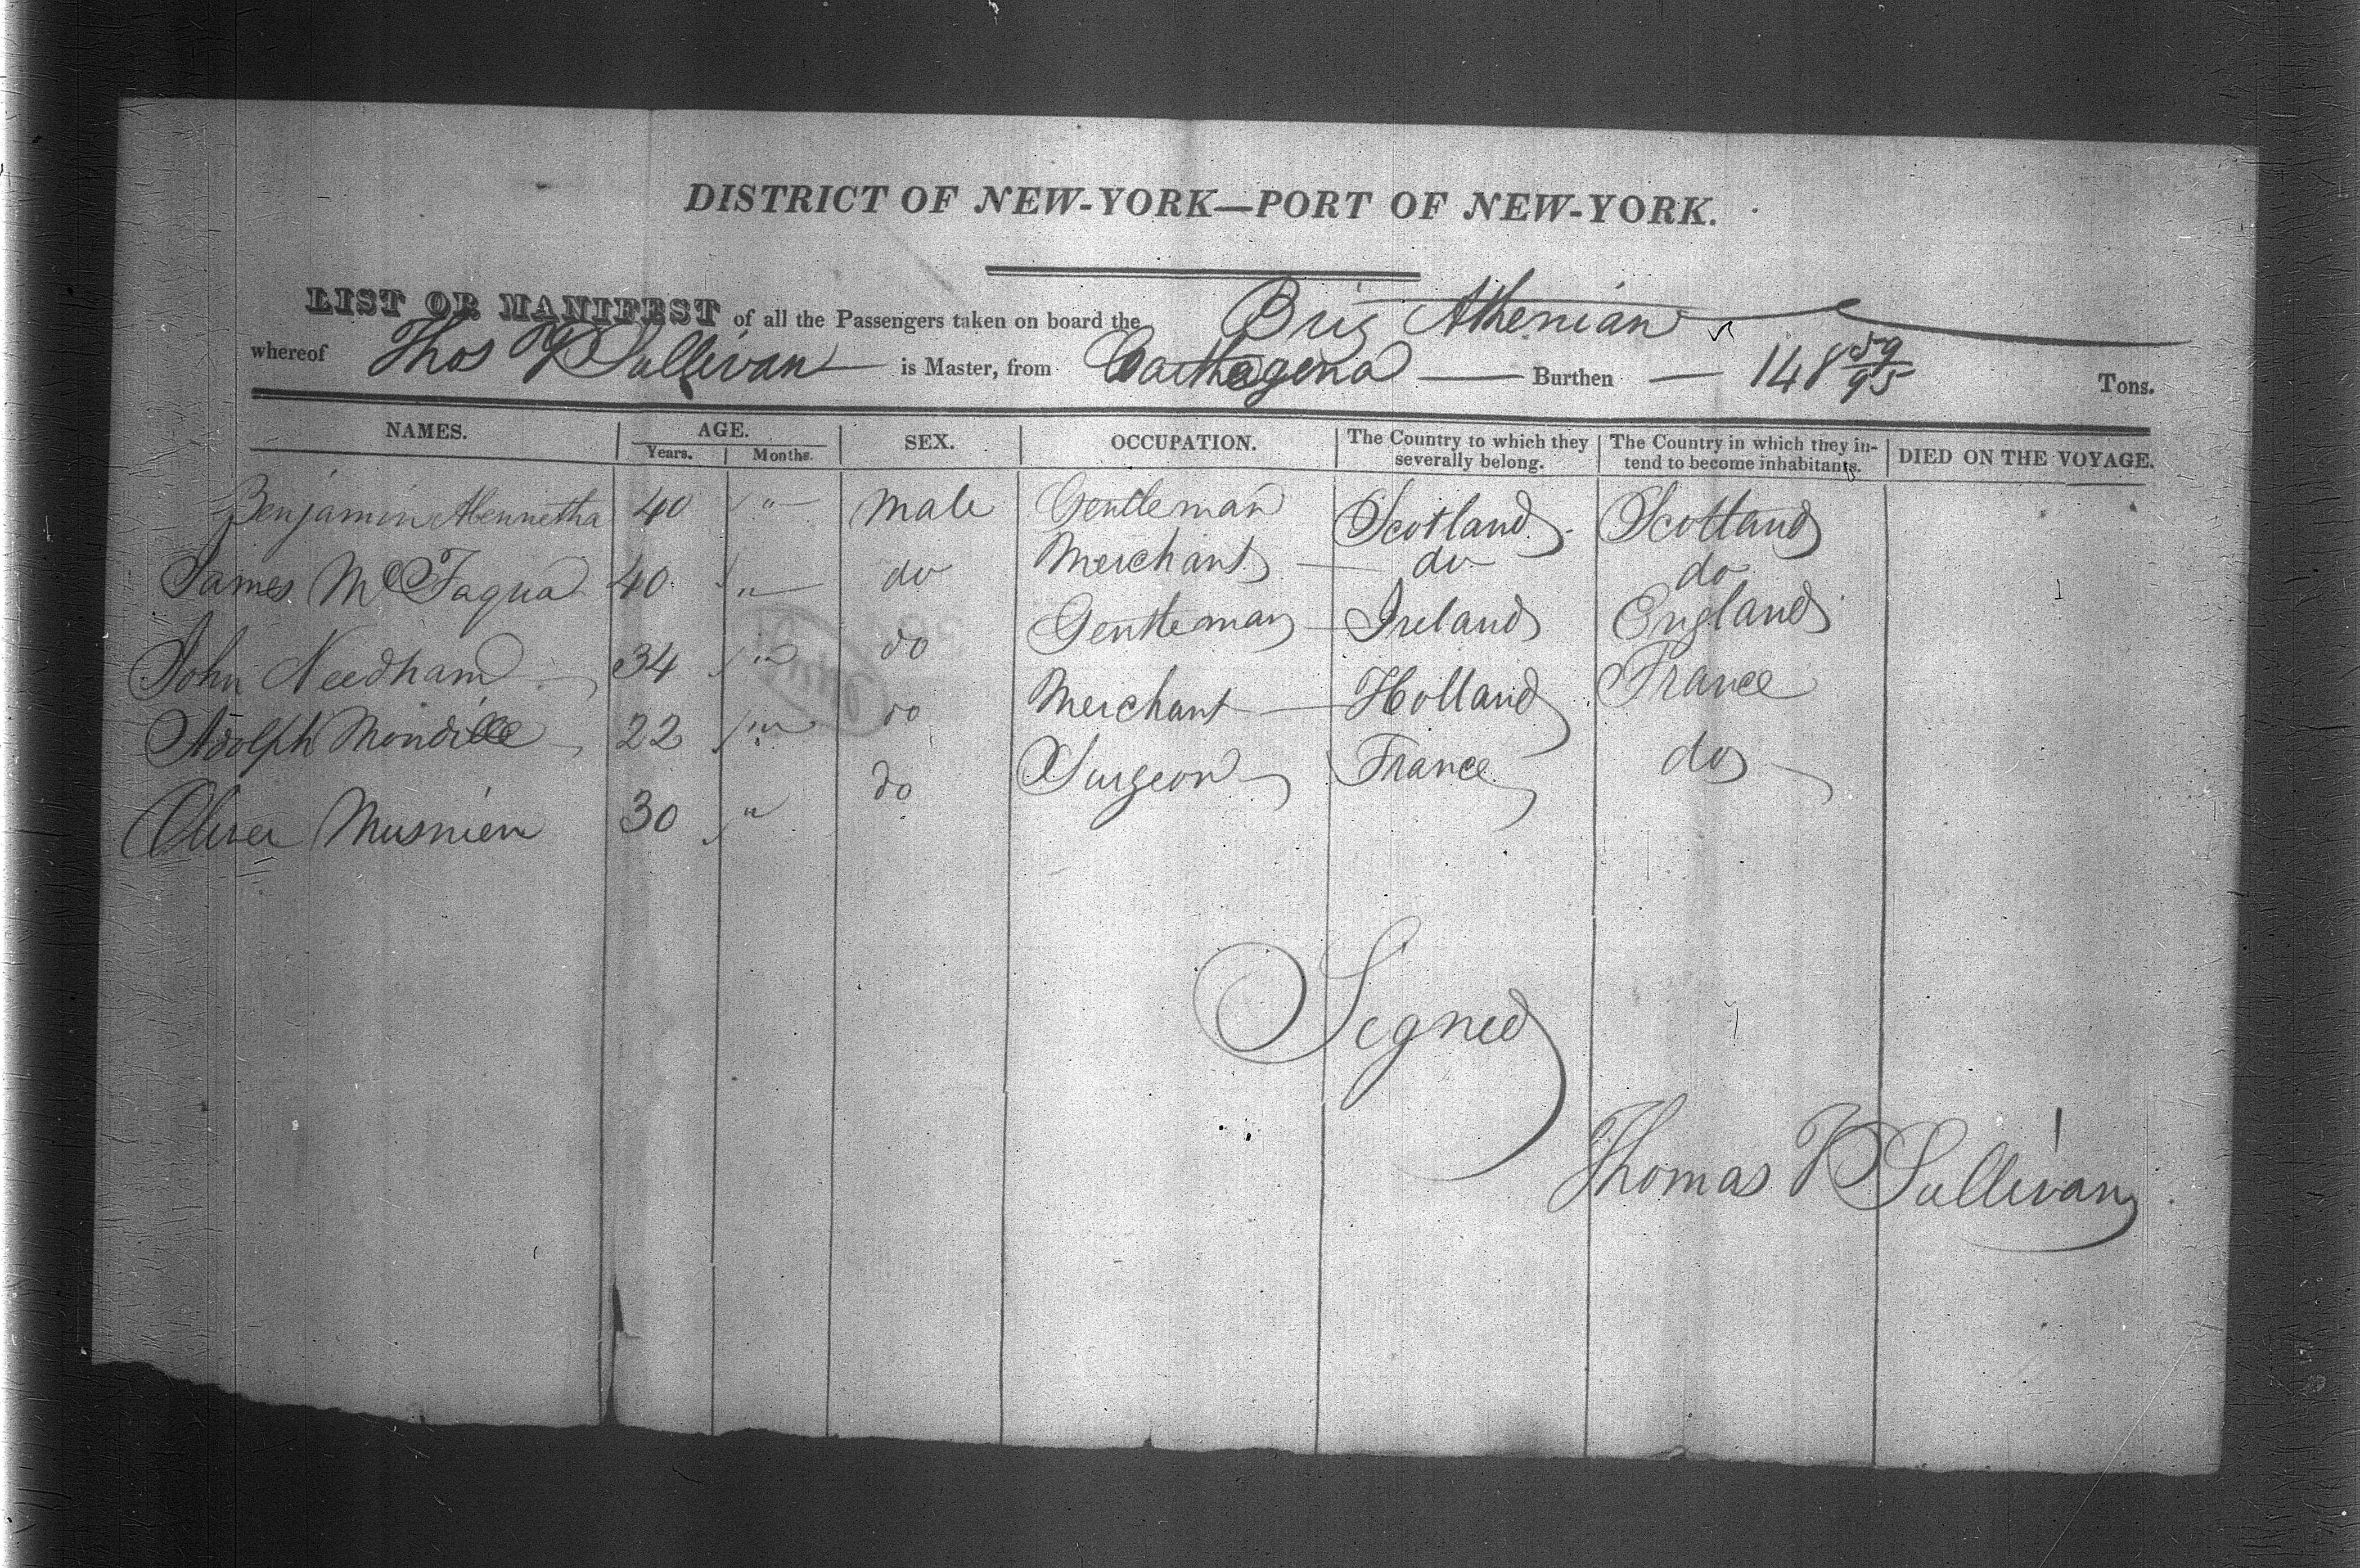 DISTRICT OF NEW-YORK—PORT OF NEW-YORK.
LIST OR MANIFEST of all the Passengers taken on board the Brig Athenian
whereof Thos V Sullivan is Master, from Carthagena Burthen 148 59/95 Tons.
NAMES. AGE. SEX. OCCUPATION. The Country to which they severally belong. The Country in which they intend to become inhabitants. DIED ON THE VOYAGE.
Years. Months.
Benjamin 40 " male Gentleman Scotland Scotland
James McFaqua 40 " do Merchant do do
John Needham 34 " do Gentleman Ireland England
Adolph Mondille 22 " do Merchant Holland France
Oliver Musnier 30 " do Surgeon France do
Signed
Thomas V Sullivan